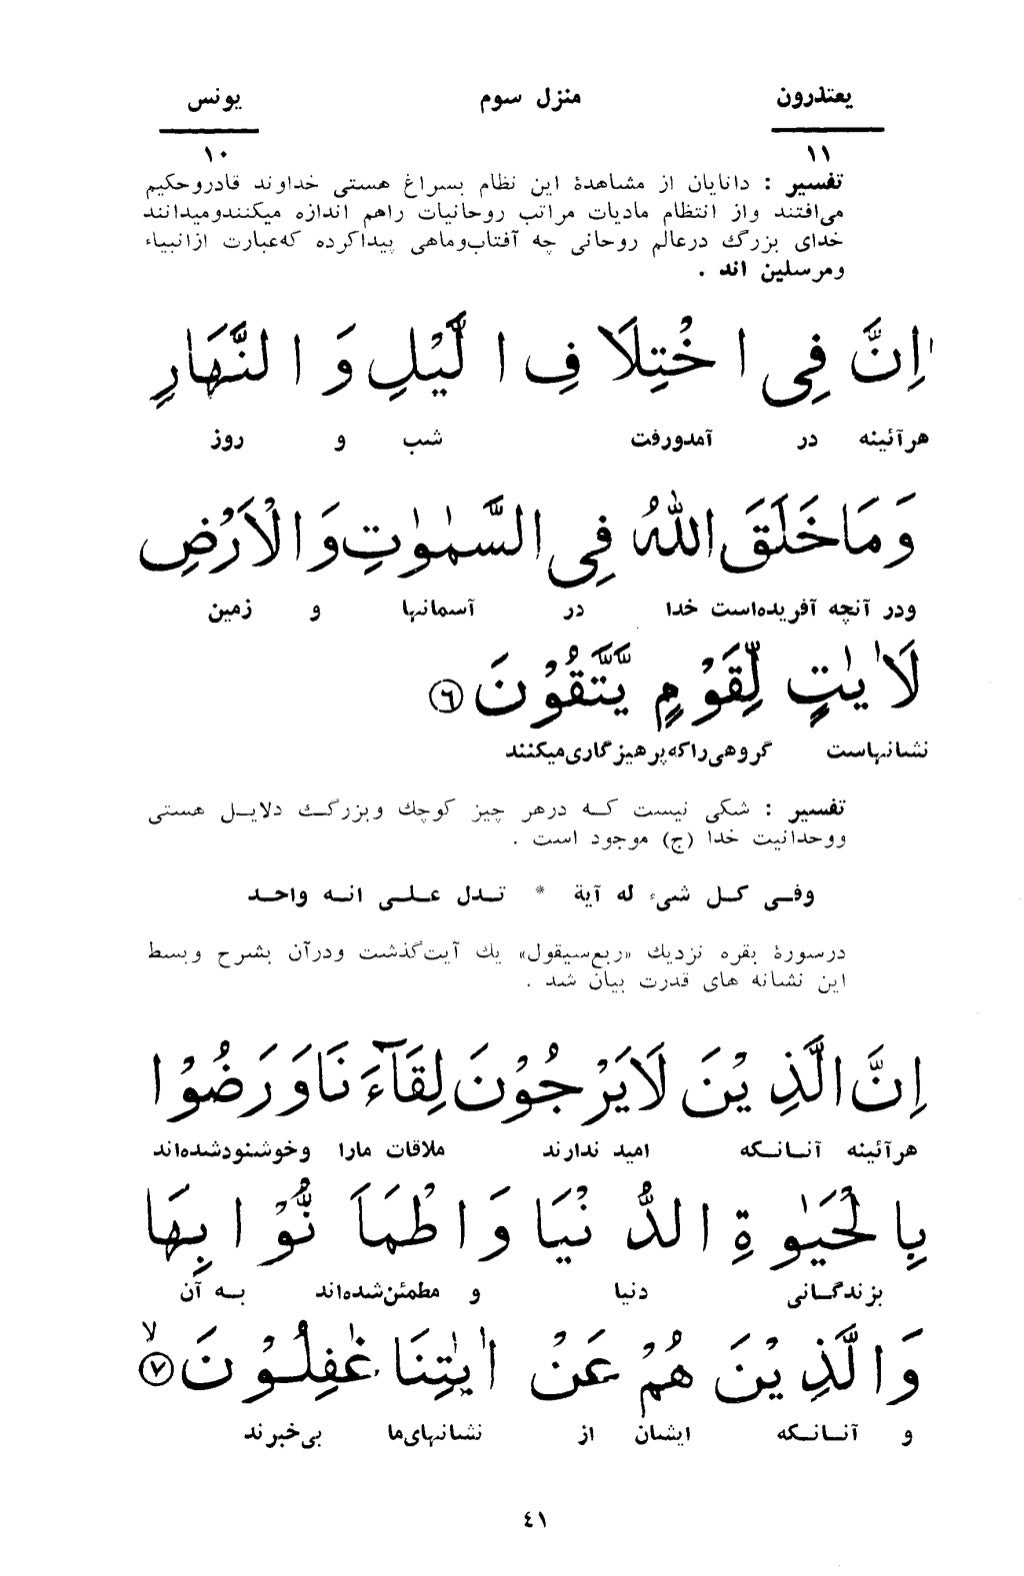 يعتذرون منزل سوم يونس
١١ ١٠
تفسير : دانايان از مشاهدهٔ اين نظام بسراغ هستى خداوند قادروحكيم
مى‌افتند واز انتظام ماديات مراتب روحانيات راهم اندازه ميكنندوميدانند
خداى بزرگ درعالم روحانى چه آفتاب‌وماهى پيداكرده كه‌عبارت ازانبياء
ومرسلين اند .
اِنَّ فِى اخْتِلَافِ الَّيْلِ وَ النَّهَارِ
هرآئينه در آمدورفت شب و روز
وَمَاخَلَقَ اللّٰهُ فِى السَّمٰوٰتِ وَالْاَرْضِ
ودر آنچه آفريده‌است خدا در آسمانها و زمين
لَاٰيٰتٍ لِّقَوْمٍ يَّتَّقُوْنَ ٦
نشانهاست گروهى‌راكه‌پرهيزگارى‌ميكنند
تفسير : شكى نيست كه درهر چيز كوچك وبزرگ دلايل هستى
ووحدانيت خدا (ج) موجود است .
وفى كل شىء له آية * تدل على انه واحد
درسورهٔ بقره نزديك «ربع‌سيقول» يك آيت‌گذشت ودرآن بشرح وبسط
اين نشانه هاى قدرت بيان شد .
اِنَّ الَّذِيْنَ لَايَرْجُوْنَ لِقَآءَنَاوَرَضُوْا
هرآئينه آنانكه اميد ندارند ملاقات مارا وخوشنودشده‌اند
بِالْحَيٰوةِ الدُّنْيَا وَاطْمَاَنُّوْا بِهَا
بزندگانى دنيا و مطمئن‌شده‌اند به آن
وَالَّذِيْنَ هُمْ عَنْ اٰيٰتِنَا غٰفِلُوْنَ ٧ لا
و آنانكه ايشان از نشانهاى‌ما بى‌خبرند
٤١